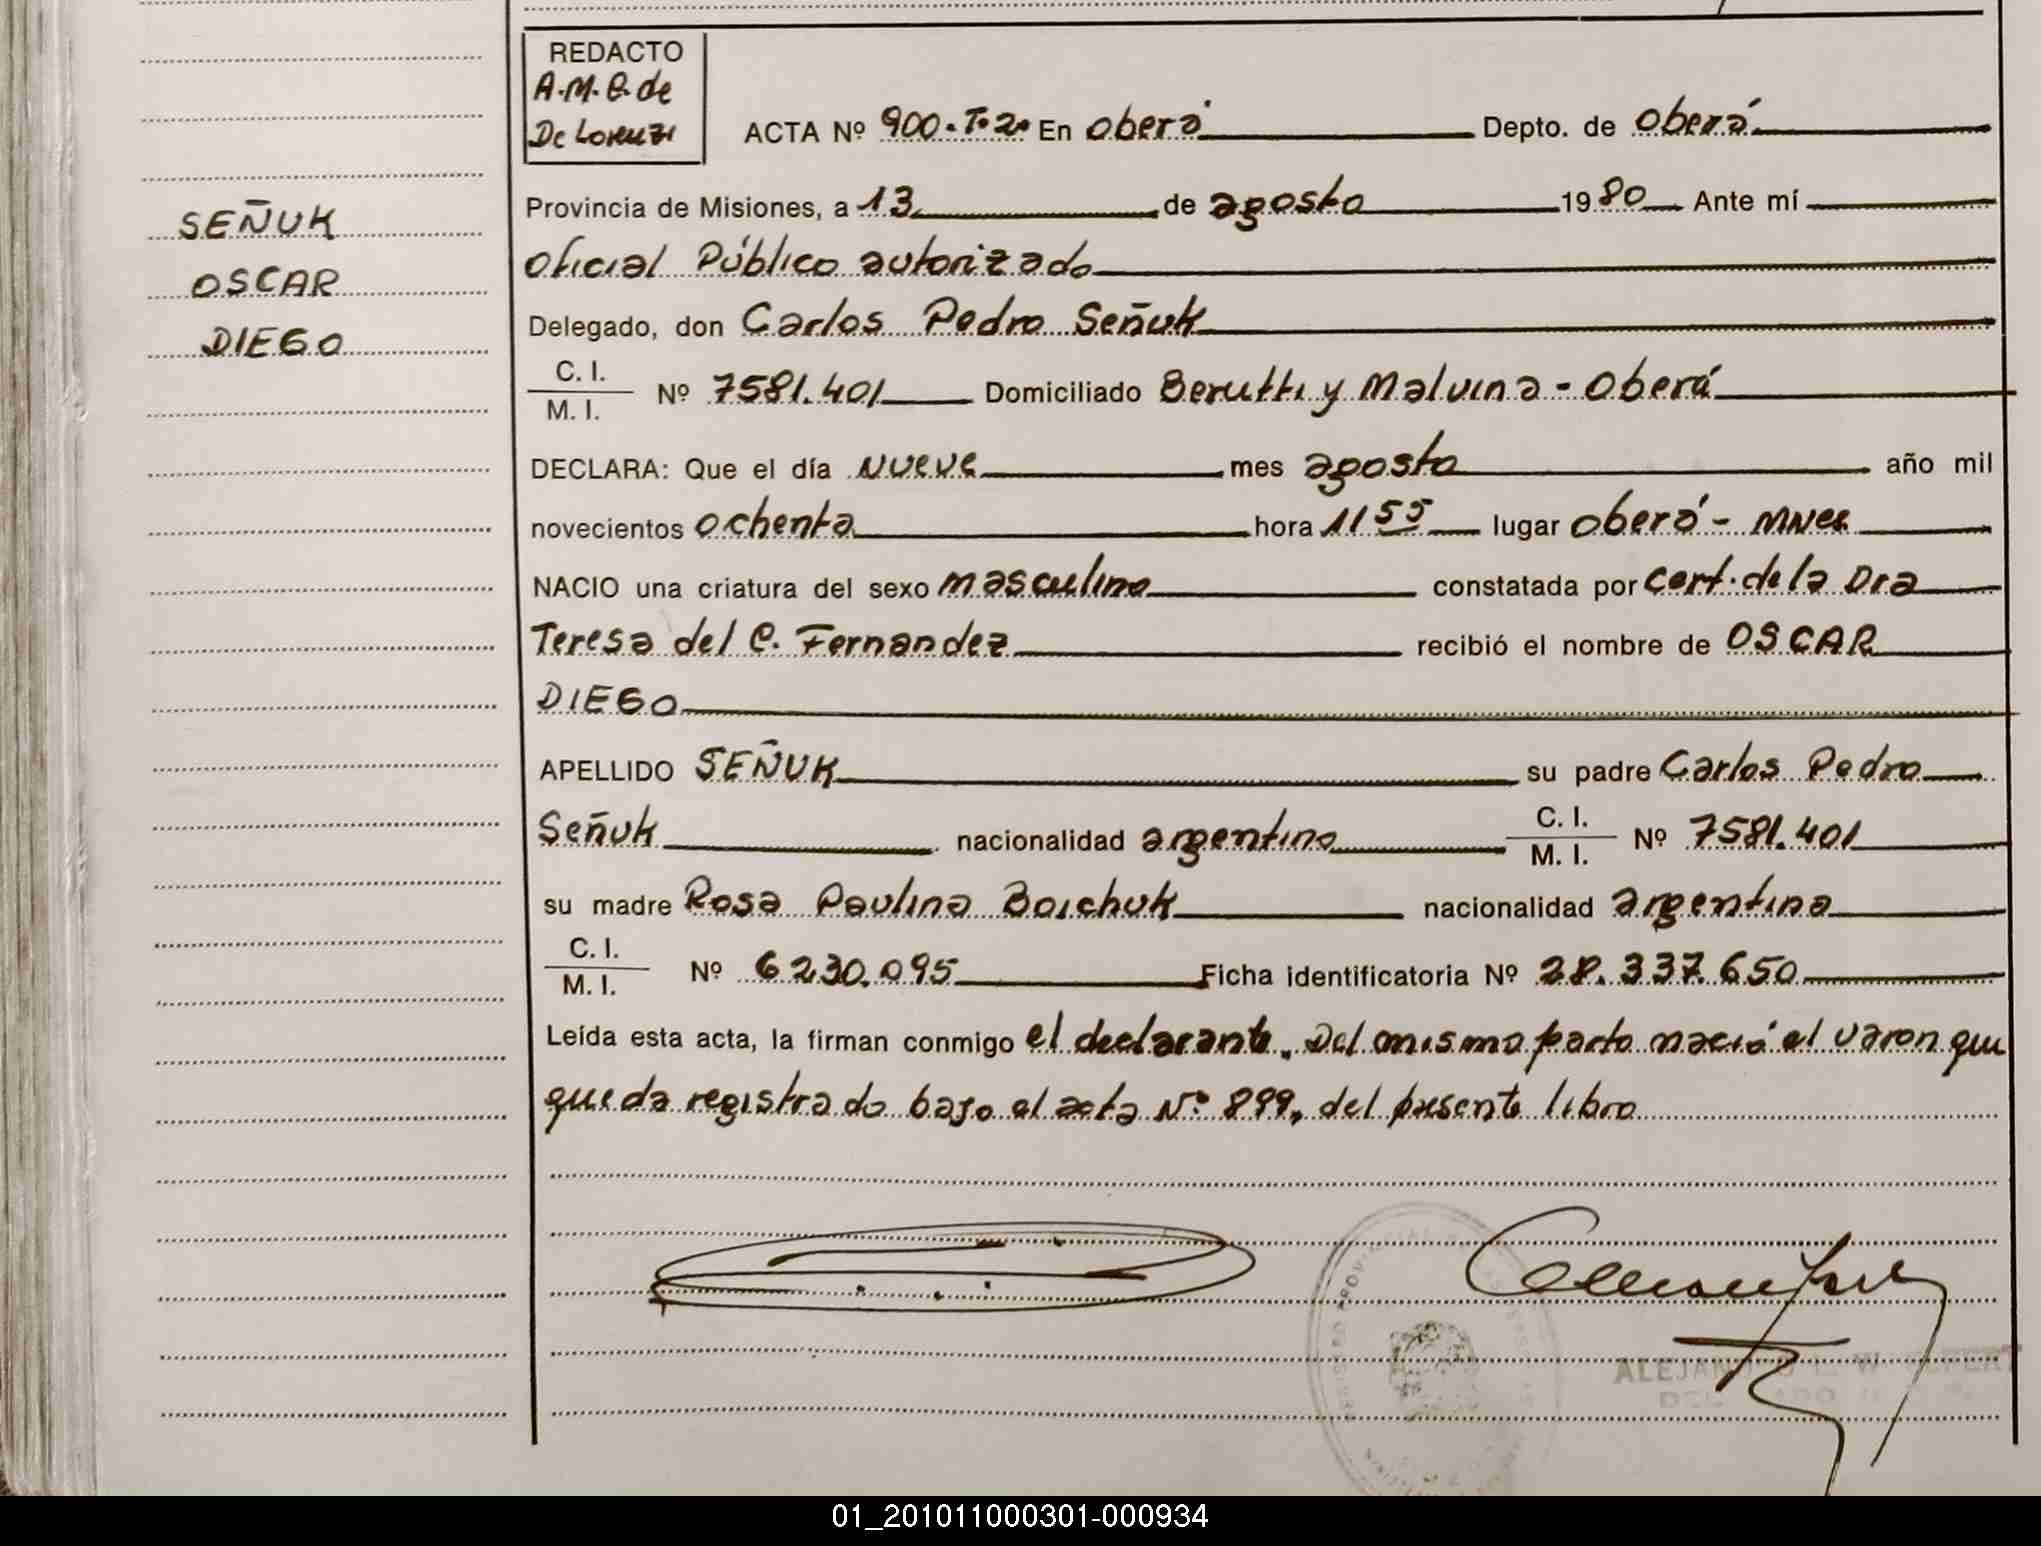 REDACTO
A.M.B. de
De Lorenzi
ACTA Nº 900.T.2. En Oberá Depto. de Oberá
Provincia de Misiones, a 13 de agosto 1980 Ante mí
SEÑUK
Oficial Público autorizado
OSCAR
Delegado, don Carlos Pedro Señuk
DIEGO
C. I.
M. I.
Nº 7581.401 Domiciliado Berutti y Malvina - Oberá
DECLARA: Que el día nueve mes agosto año mil
novecientos ochenta hora 11 55 lugar Oberá - Mnes
NACIO una criatura del sexo masculino constatada por cert. de la Dra
Teresa del C. Fernandez recibió el nombre de OSCAR
DIEGO
APELLIDO SEÑUK su padre Carlos Pedro
Señuk nacionalidad argentino C. I. M. I. Nº 7581.401
su madre Rosa Paulina Boichuk nacionalidad argentina
C. I. M. I. Nº 6.230.095 Ficha identificatoria Nº 28.337.650
Leída esta acta, la firman conmigo el declarante. Del mismo parto nació el varon que
queda registrado bajo el acta Nº 899, del presente libro
01_201011000301-000934